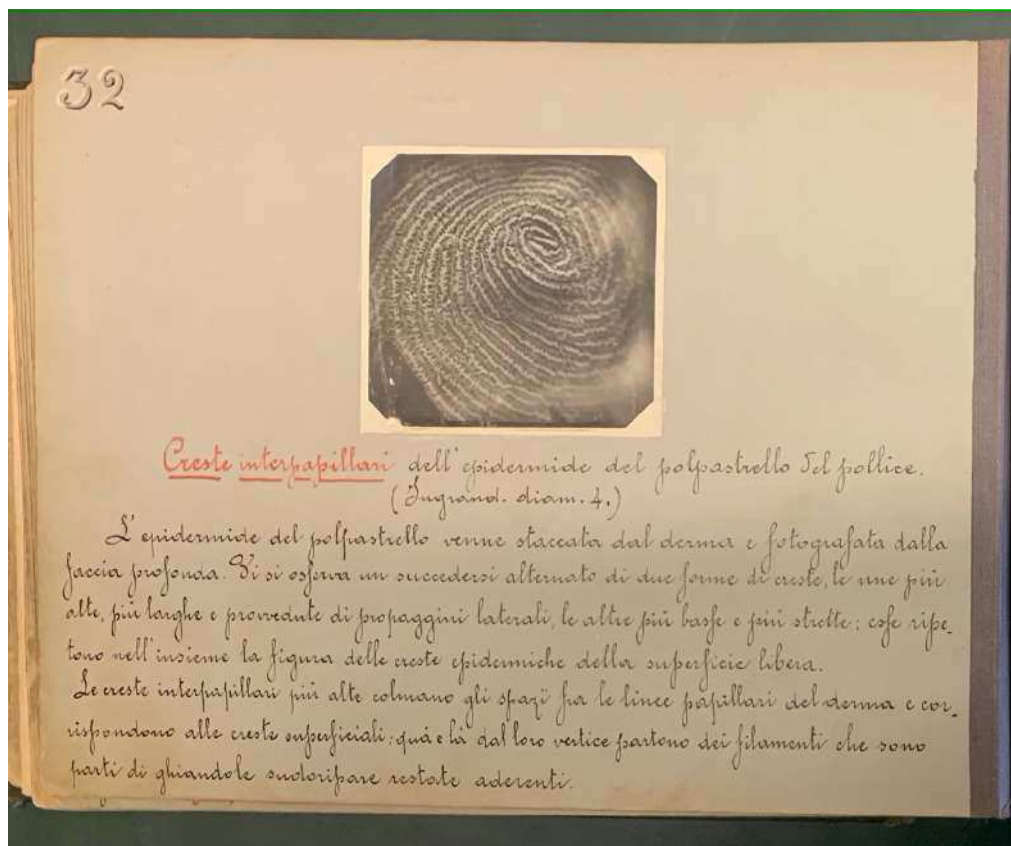 32
Creste interpapillari dell'epidermide del polpastrello del pollice.
(Ingrand. diam. 4.)
L'epidermide del polpastrello venne staccata dal derma e fotografata dalla
faccia profonda. Vi si osserva un succedersi alternato di due forme di creste, le une più
alte, più larghe e provvedute di propaggini laterali, le altre più basse e più strette; esse ripe-
tono nell'insieme la figura delle creste epidermiche della superficie libera.
Le creste interpapillari più alte colmano gli spazî fra le linee papillari del derma e cor-
rispondono alle creste superficiali; quà e là dal loro vertice partono dei filamenti che sono
parti di ghiandole sudoripare restate aderenti.